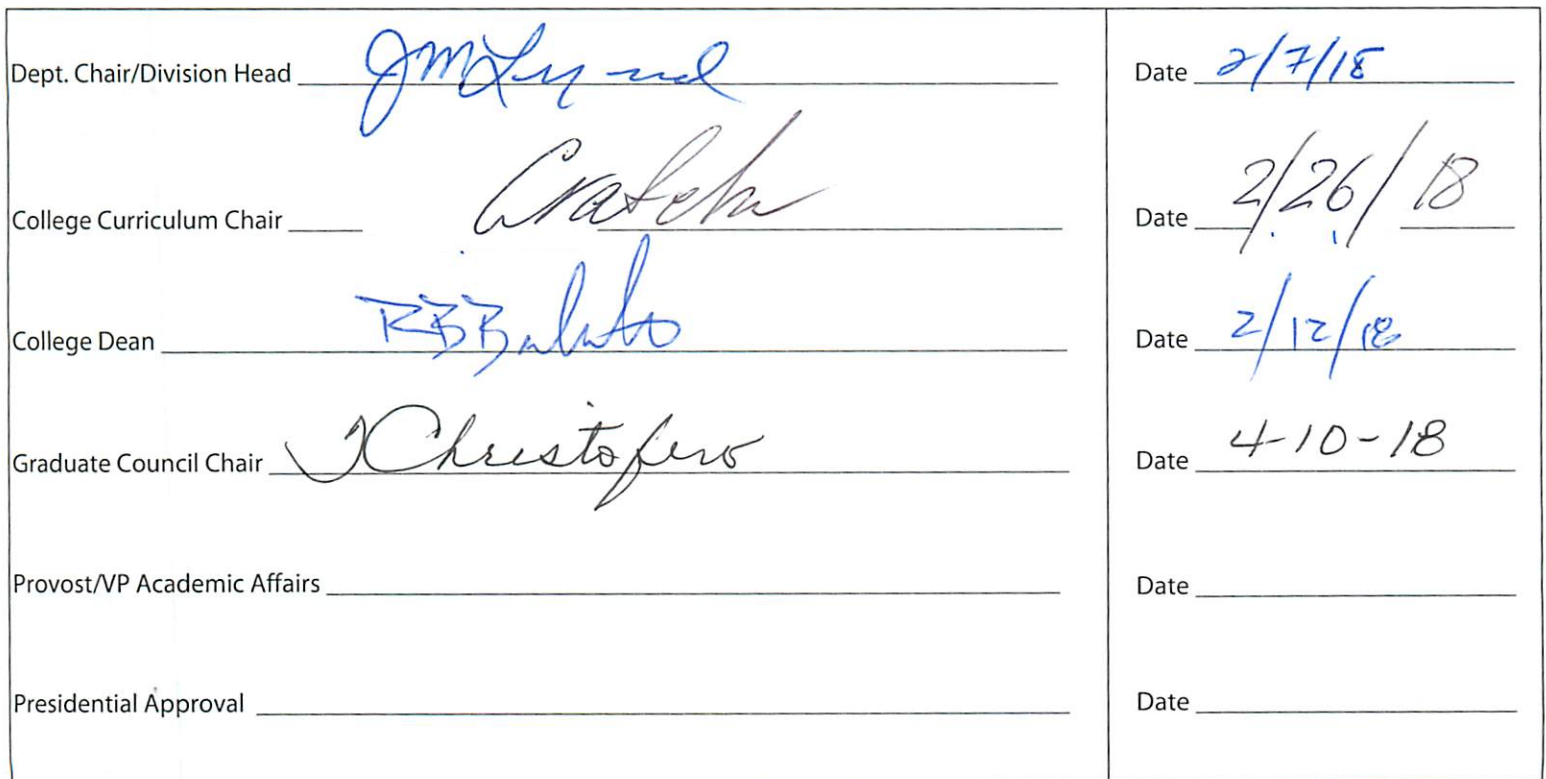 Dept. Chair/Division Head Date 2/7/18
College Curriculum Chair Date 2/26/18
College Dean Date 2/12/18
Graduate Council Chair JChristofero Date 4-10-18
Provost/VP Academic Affairs Date
Presidential Approval Date